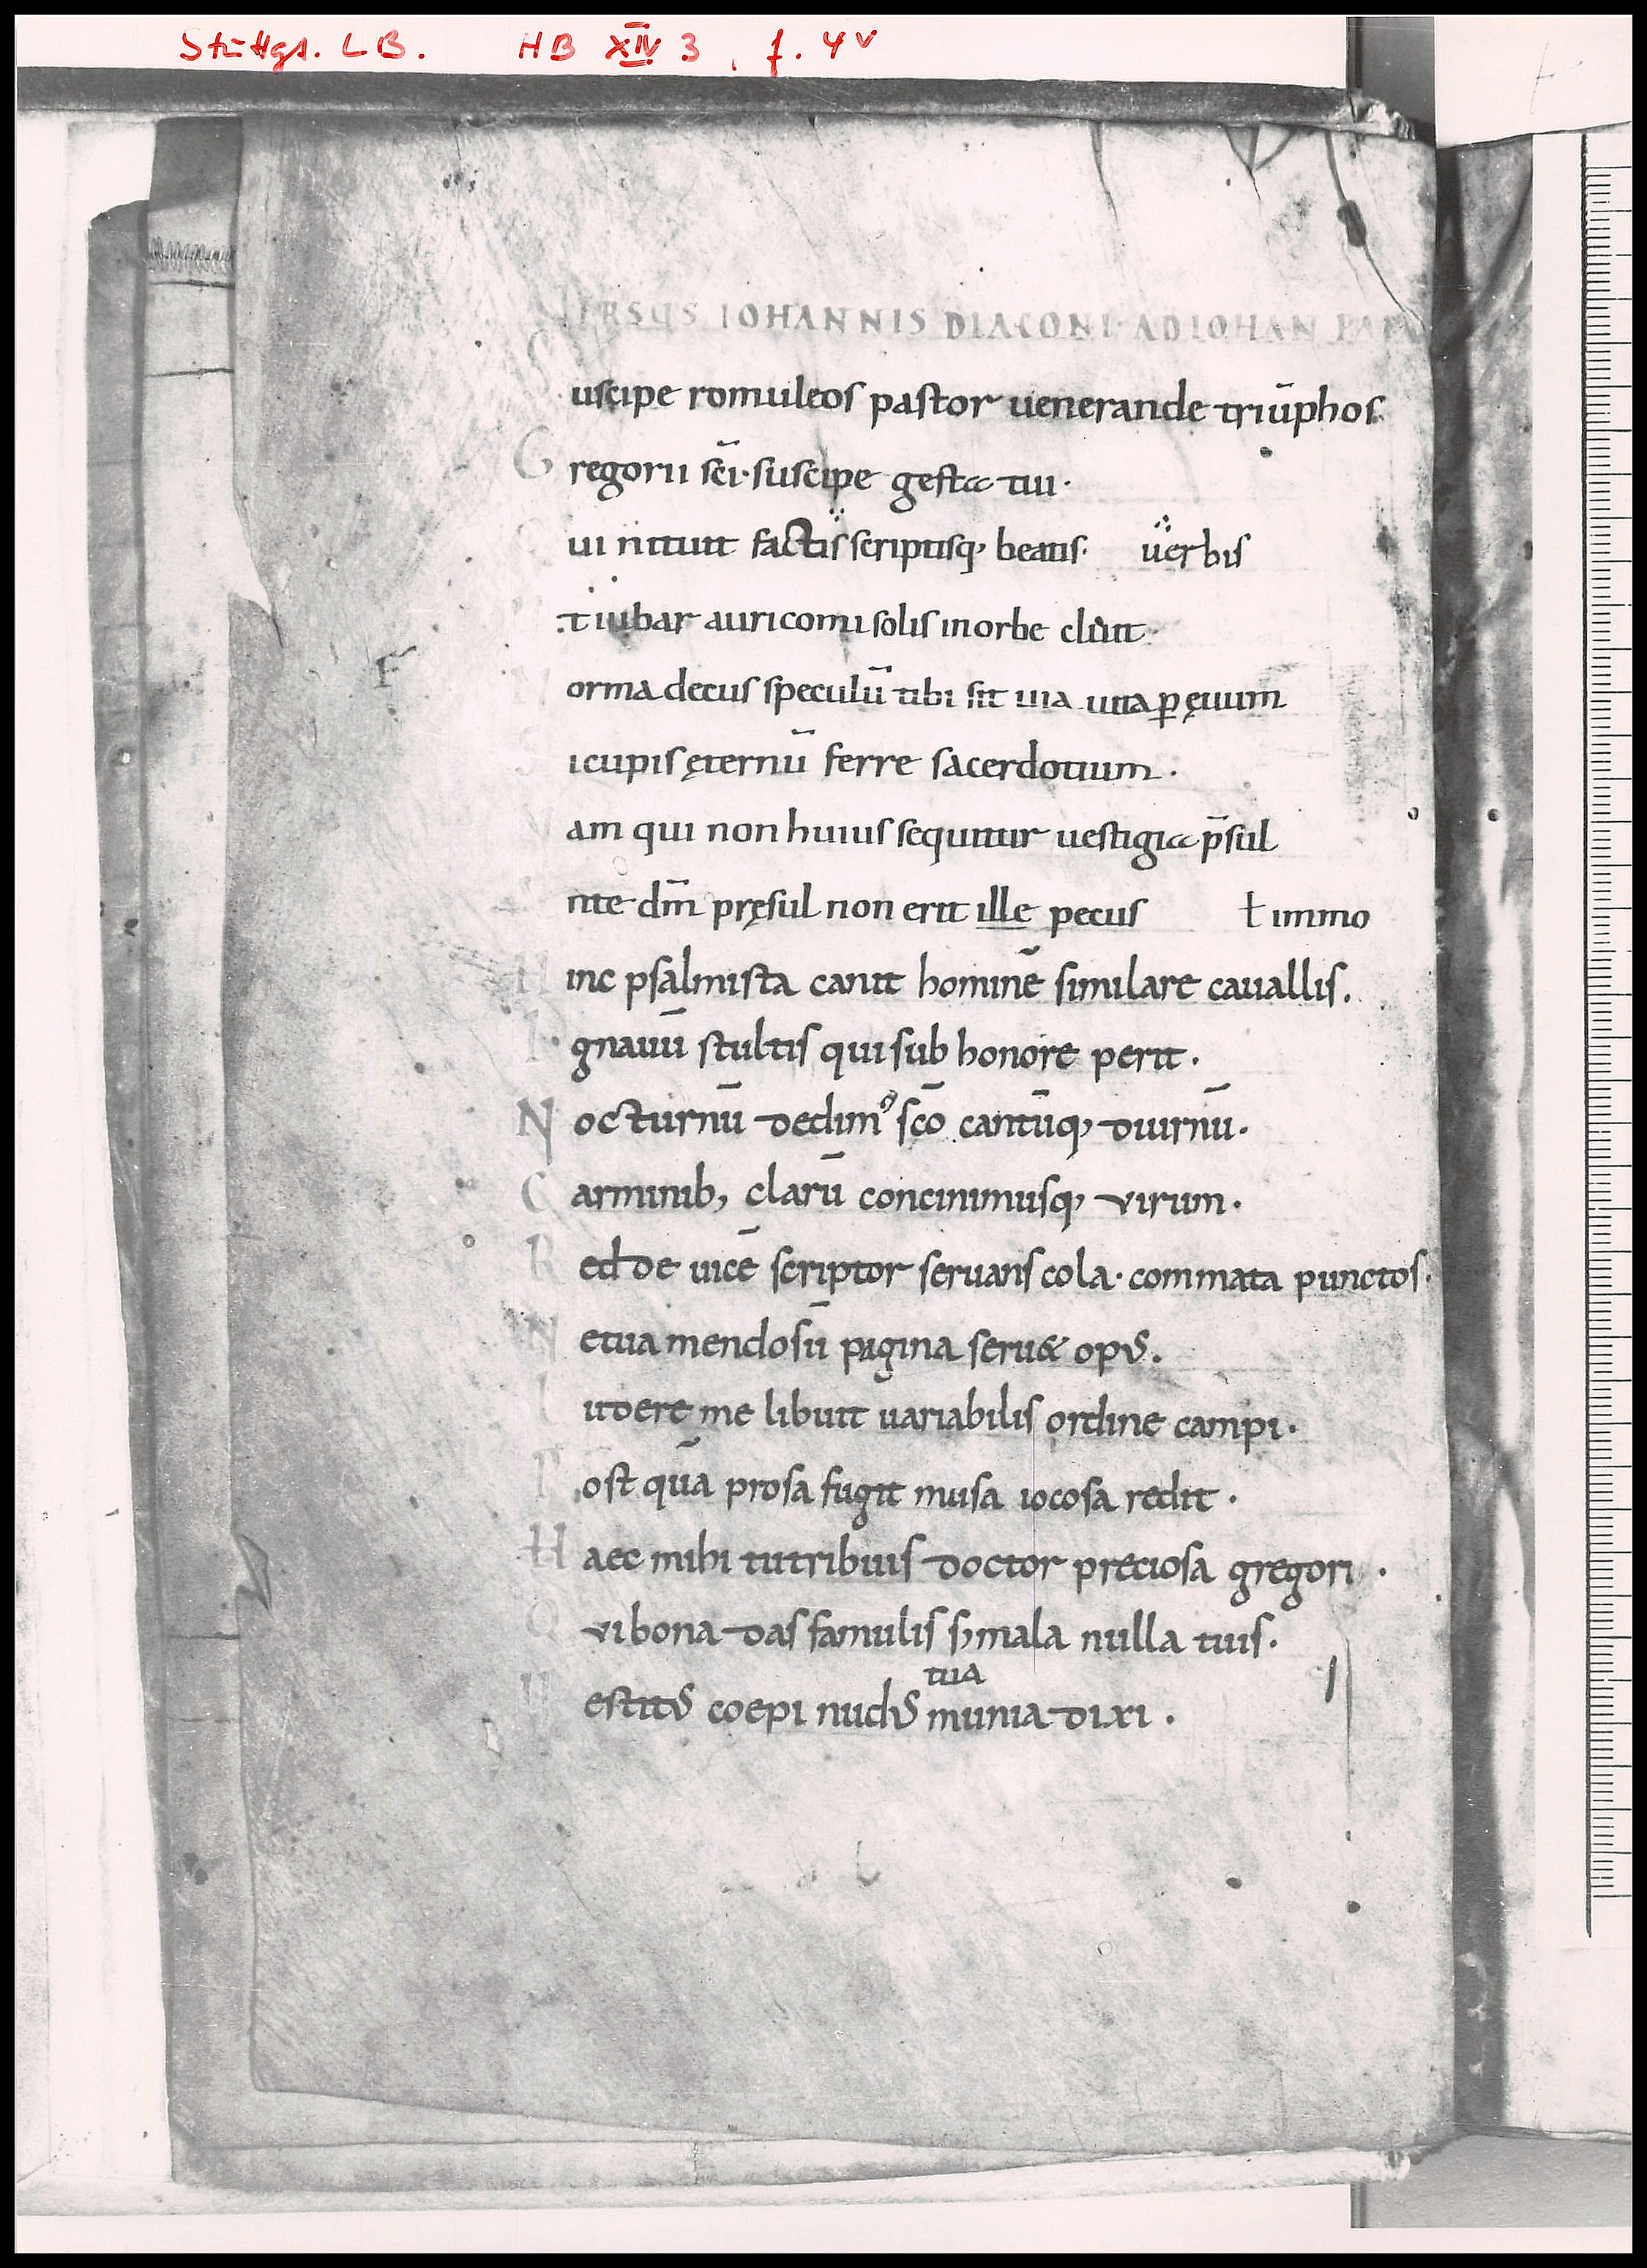 Stuttg. LB. HB XIV 3, f. 4v
VERSUS IOHANNIS DIACONI· AD IOHAN PAP
Suscipe romuleos pastor uenerande triūphos
Gregorii sc̄i· suscipe gesta tui·
Qui nituit factis scriptisq; beatis· uerbis
Ut iubar auricomi solis in orbe cluit·
Norma decus speculū tibi sit uia uita ꝑ ęuum
Si cupis ęternū ferre sacerdotium·
Nam qui non huius sequitur uestigia p̄sul
Ante dm̄ pręsul non erit ille pecus ł immo
Hinc psalmista canit hominē similare cauallis.
Ignauū stultis qui sub honore perit·
Nocturnū dedimꝰ sc̄o cantūq; diurnū·
Carminib; clarū concinimusq; virum·
Redde uicē scriptor seruans cola· commata punctos·
Ne tua mendosū pagina seru& opus.
Ludere me libuit uariabilis ordine campi·
Post quā prosa fugit musa iocosa redit·
Haec mihi tu tribuis doctor preciosa gregori·
Qui bona das famulis s; mala nulla tuis·
tua
Uestitus coepi nudus munia dixi·